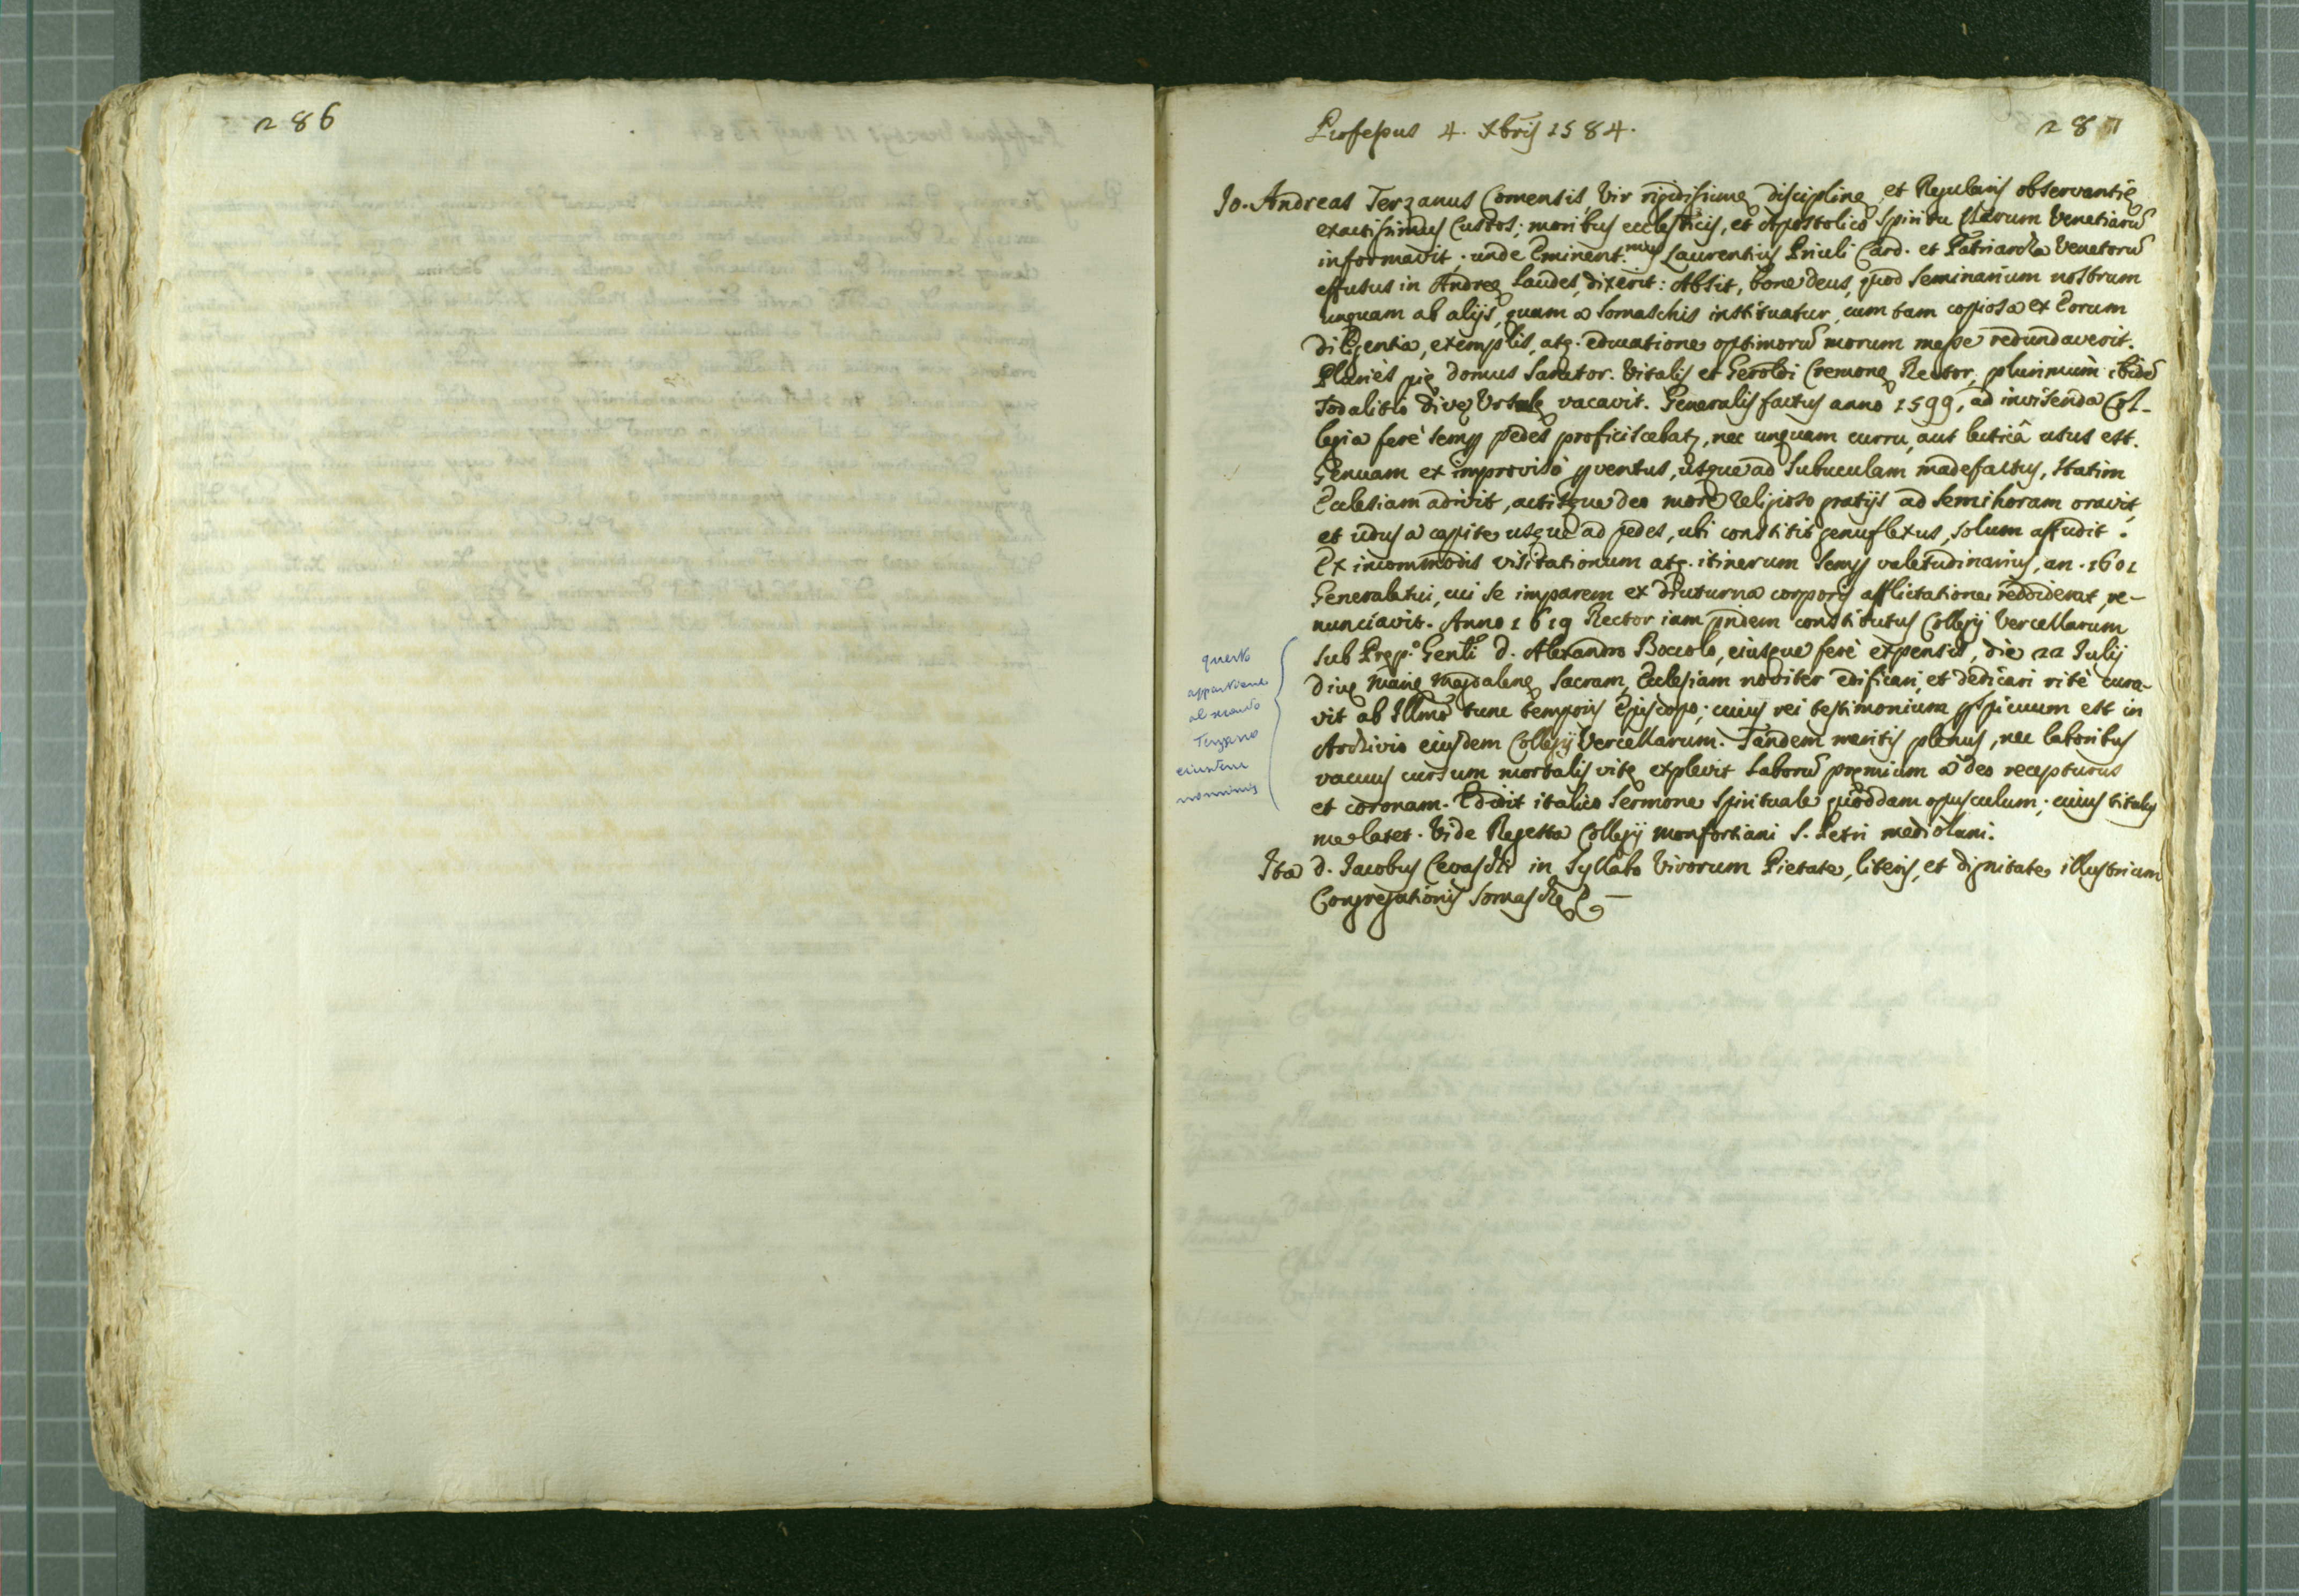 286
287
Professus 4. Xbris 1584.
Jo. Andreas Terzanus Comensis, Vir rigidissimę disciplinę, et Regularis observantię
exactissimus Custos; moribus eccl̄sticis, et Apostolico Spiritu Clerum Venetiarū
informavit; unde Eminent.mus Laurentius Priuli Card. et Patriarcha Venetorū
effusus in Andreę laudes, dixerit: Absit, bone Deus, quod Seminarium nostrum
unquam ab alijs, quam a Somaschis instituatur, cum tam copiosa ex Eorum
diligentia, exemplis, atq. educatione optimorū morum messe redundaverit.
Pluries pię domus Sanctor. Vitalis et Geroldi Cremonę Rector, plurimùm ibidē
Sodalitio divę Ursulę vacavit. Generalis factus anno 1599, ad invisenda Col-
legia ferè semp pedes proficiscebat, nec unquam curru, aut lecticâ usus est.
Genuam ex improviso pventus, usque ad Subuculam madefactus, statim
Ecclesiam adivit, actisque deo more religioso gratijs ad semihoram oravit,
et udus a capite usque ad pedes, ubi constitit genuflexus, solum affudit.
Ex incommodis visitationum atq. itinerum semp valetudinarius, an. 1601
Generalatui, cui se imparem ex diuturna corporis afflictatione reddiderat, re-
nunciavit. Anno 1619 Rector iam pridem constitutus Collegij Vercellarum
sub Pręp.o Gen̄li D. Alexandro Boccolo, eiusque ferè expensis, die 22 Julij
Divę Marię Magdalenę Sacram Ecclesiam noviter edificari, et dedicari ritè cura-
vit ab Illm̄o tunc temporis Episcopo; cuius rei testimonium pspicuum est in
Archivio eiusdem Collegij Vercellarum. Tandem meritis plenus, nec laboribus
vacuus cursum mortalis vitę explevit laborū pręmium a deo recepturus
et coronam. Edidit italico Sermone Spirituale quoddam opusculum; cuius titulus
me latet. Vide Regesta Collegij Monfortiani S. Petri Mediolani.
Ita D. Jacobus Cevaschi in Syllabo Virorum Pietate, literis, et dignitate illustrium
Congregationis Somaschę
questo
appartiene
al secondo
Terzano
eiusdem
nominis